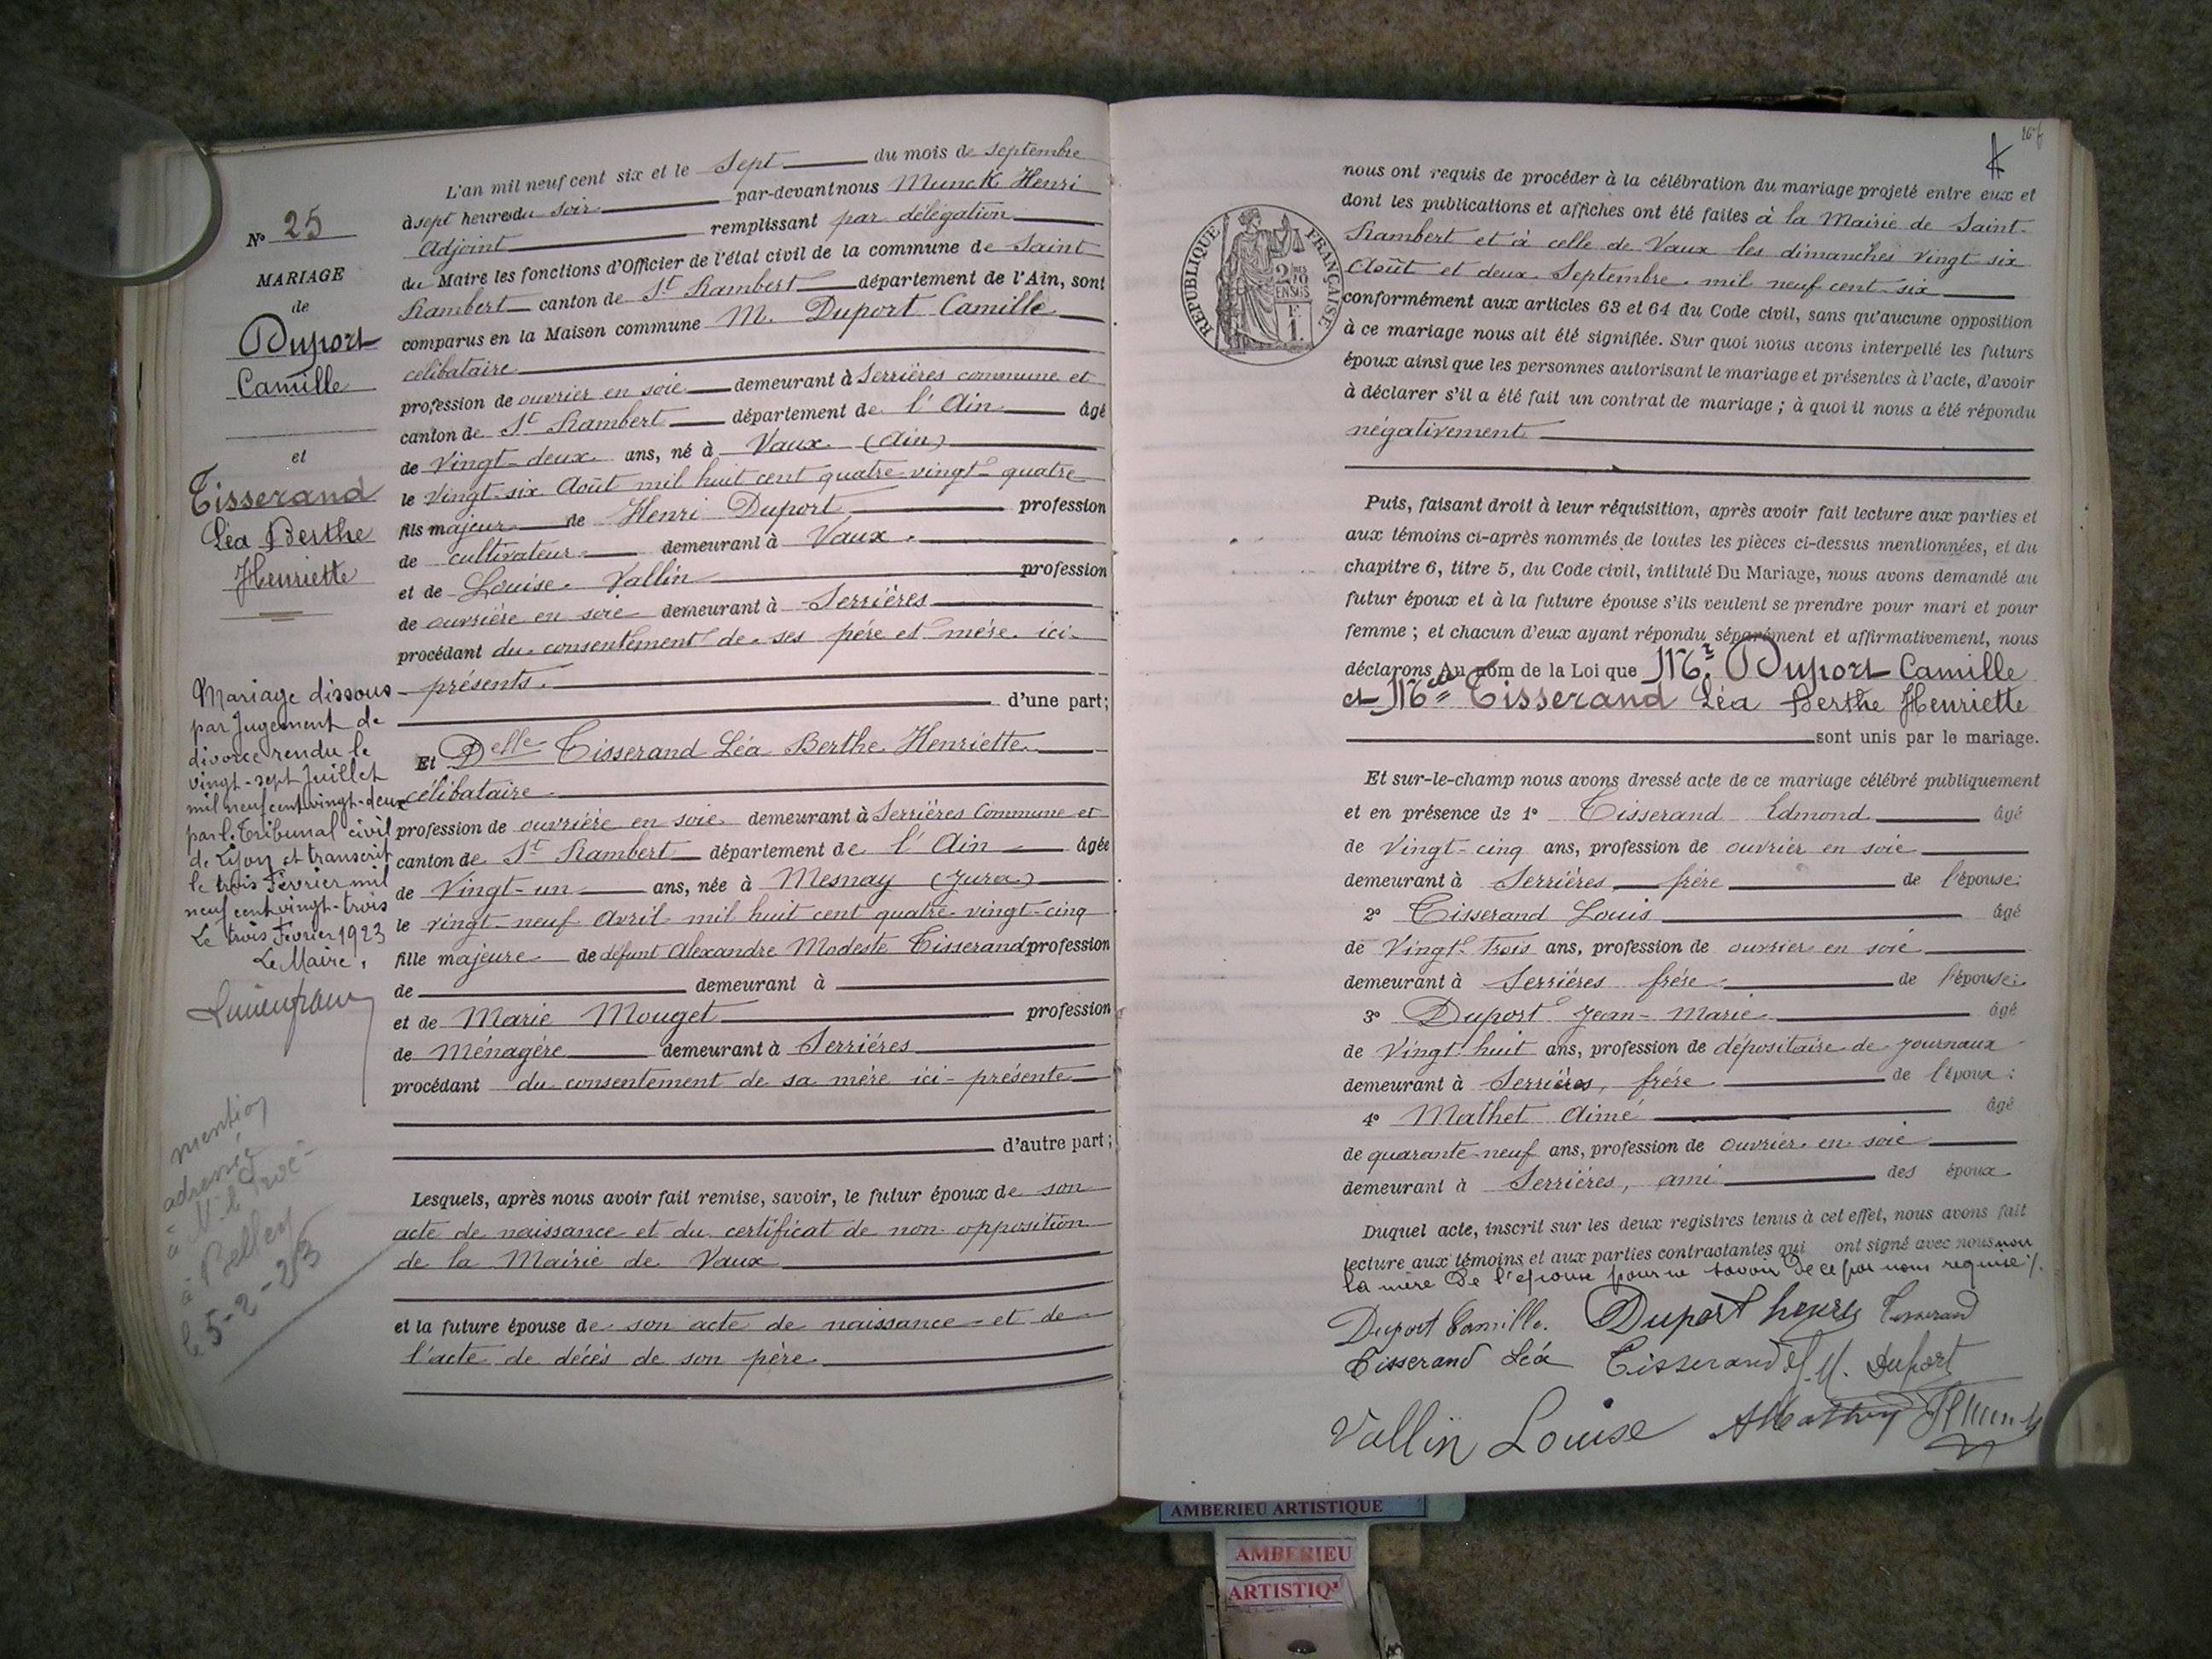 N° 25
MARIAGE
de
Duport
Camille
et
Tisserand
Léa Berthe
Henriette
Mariage dissous
par Jugement de
divorce rendu le
vingt-sept Juillet
mil neuf cent vingt-deux
par le Tribunal civil
de Lyon et transcrit
le trois Février mil
neuf cent vingt-trois
Le trois Février 1923
Le Maire,
mention
adressée
à M. le Proc-
à Belley
le 5-2-23
L'an mil neuf cent six et le Sept du mois de Septembre
à sept heures du soir par-devant nous Munck Henri
Adjoint remplissant par délégation
du Maire les fonctions d'Officier de l'état civil de la commune de Saint
Rambert canton de St Rambert département de l'Ain, sont
comparus en la Maison commune M. Duport Camille
célibataire
profession de ouvrier en soie demeurant à Serrières commune et
canton de St Rambert département de l'Ain âgé
de Vingt-deux ans, né à Vaux (Ain)
le Vingt-six Août mil huit cent quatre-vingt-quatre
fils majeur de Henri Duport profession
de cultivateur demeurant à Vaux.
et de Louise Vallin profession
de ouvrière en soie demeurant à Serrières
procédant du consentement de ses père et mère ici-
présents.
d'une part;
Et Delle Tisserand Léa Berthe Henriette
célibataire
profession de ouvrière en soie demeurant à Serrières Commune et
canton de St Rambert département de l'Ain âgée
de Vingt-un ans, née à Mesnay (Jura)
le vingt-neuf Avril mil huit cent quatre-vingt-cinq
fille majeure de défunt Alexandre Modeste Tisserand profession
de demeurant à
et de Marie Mouget profession
de Ménagère demeurant à Serrières
procédant du consentement de sa mère ici-présente
d'autre part;
Lesquels, après nous avoir fait remise, savoir, le futur époux de son
acte de naissance et du certificat de non opposition
de la Mairie de Vaux
et la future épouse de son acte de naissance et de
l'acte de décès de son père.
RÉPUBLIQUE FRANÇAISE
2/10
EN SUS
F.
1.
nous ont requis de procéder à la célébration du mariage projeté entre eux et
dont les publications et affiches ont été faites à la Mairie de Saint-
Rambert et à celle de Vaux les dimanches vingt-six
Août et deux Septembre mil neuf cent six
conformément aux articles 63 et 64 du Code civil, sans qu'aucune opposition
à ce mariage nous ait été signifiée. Sur quoi nous avons interpellé les futurs
époux ainsi que les personnes autorisant le mariage et présentes à l'acte, d'avoir
à déclarer s'il a été fait un contrat de mariage; à quoi il nous a été répondu
négativement
Puis, faisant droit à leur réquisition, après avoir fait lecture aux parties et
aux témoins ci-après nommés de toutes les pièces ci-dessus mentionnées, et du
chapitre 6, titre 5, du Code civil, intitulé Du Mariage, nous avons demandé au
futur époux et à la future épouse s'ils veulent se prendre pour mari et pour
femme; et chacun d'eux ayant répondu séparément et affirmativement, nous
déclarons Au nom de la Loi que Mr Duport Camille
et Melle Tisserand Léa Berthe Henriette
sont unis par le mariage.
Et sur-le-champ nous avons dressé acte de ce mariage célébré publiquement
et en présence de 1° Tisserand Edmond âgé
de Vingt-cinq ans, profession de ouvrier en soie
demeurant à Serrières frère de l'épouse;
2° Tisserand Louis âgé
de Vingt-Trois ans, profession de ouvrier en soie
demeurant à Serrières frère de l'épouse;
3° Duport Jean-Marie âgé
de Vingt huit ans, profession de dépositaire de journaux
demeurant à Serrières, frère de l'époux;
4° Mathet Aimé âgé
de quarante-neuf ans, profession de ouvrier en soie
demeurant à Serrières, ami des époux
Duquel acte, inscrit sur les deux registres tenus à cet effet, nous avons fait
lecture aux témoins et aux parties contractantes qui ont signé avec nous non
la mère de l'épouse pour ne savoir de ce par nous requise /.
Duport Camille. Duport henry Tisserand
Tisserand Léa Tisserand J. M. Duport
Vallin Louise
AMBERIEU ARTISTIQUE
AMBERIEU
ARTISTIQ